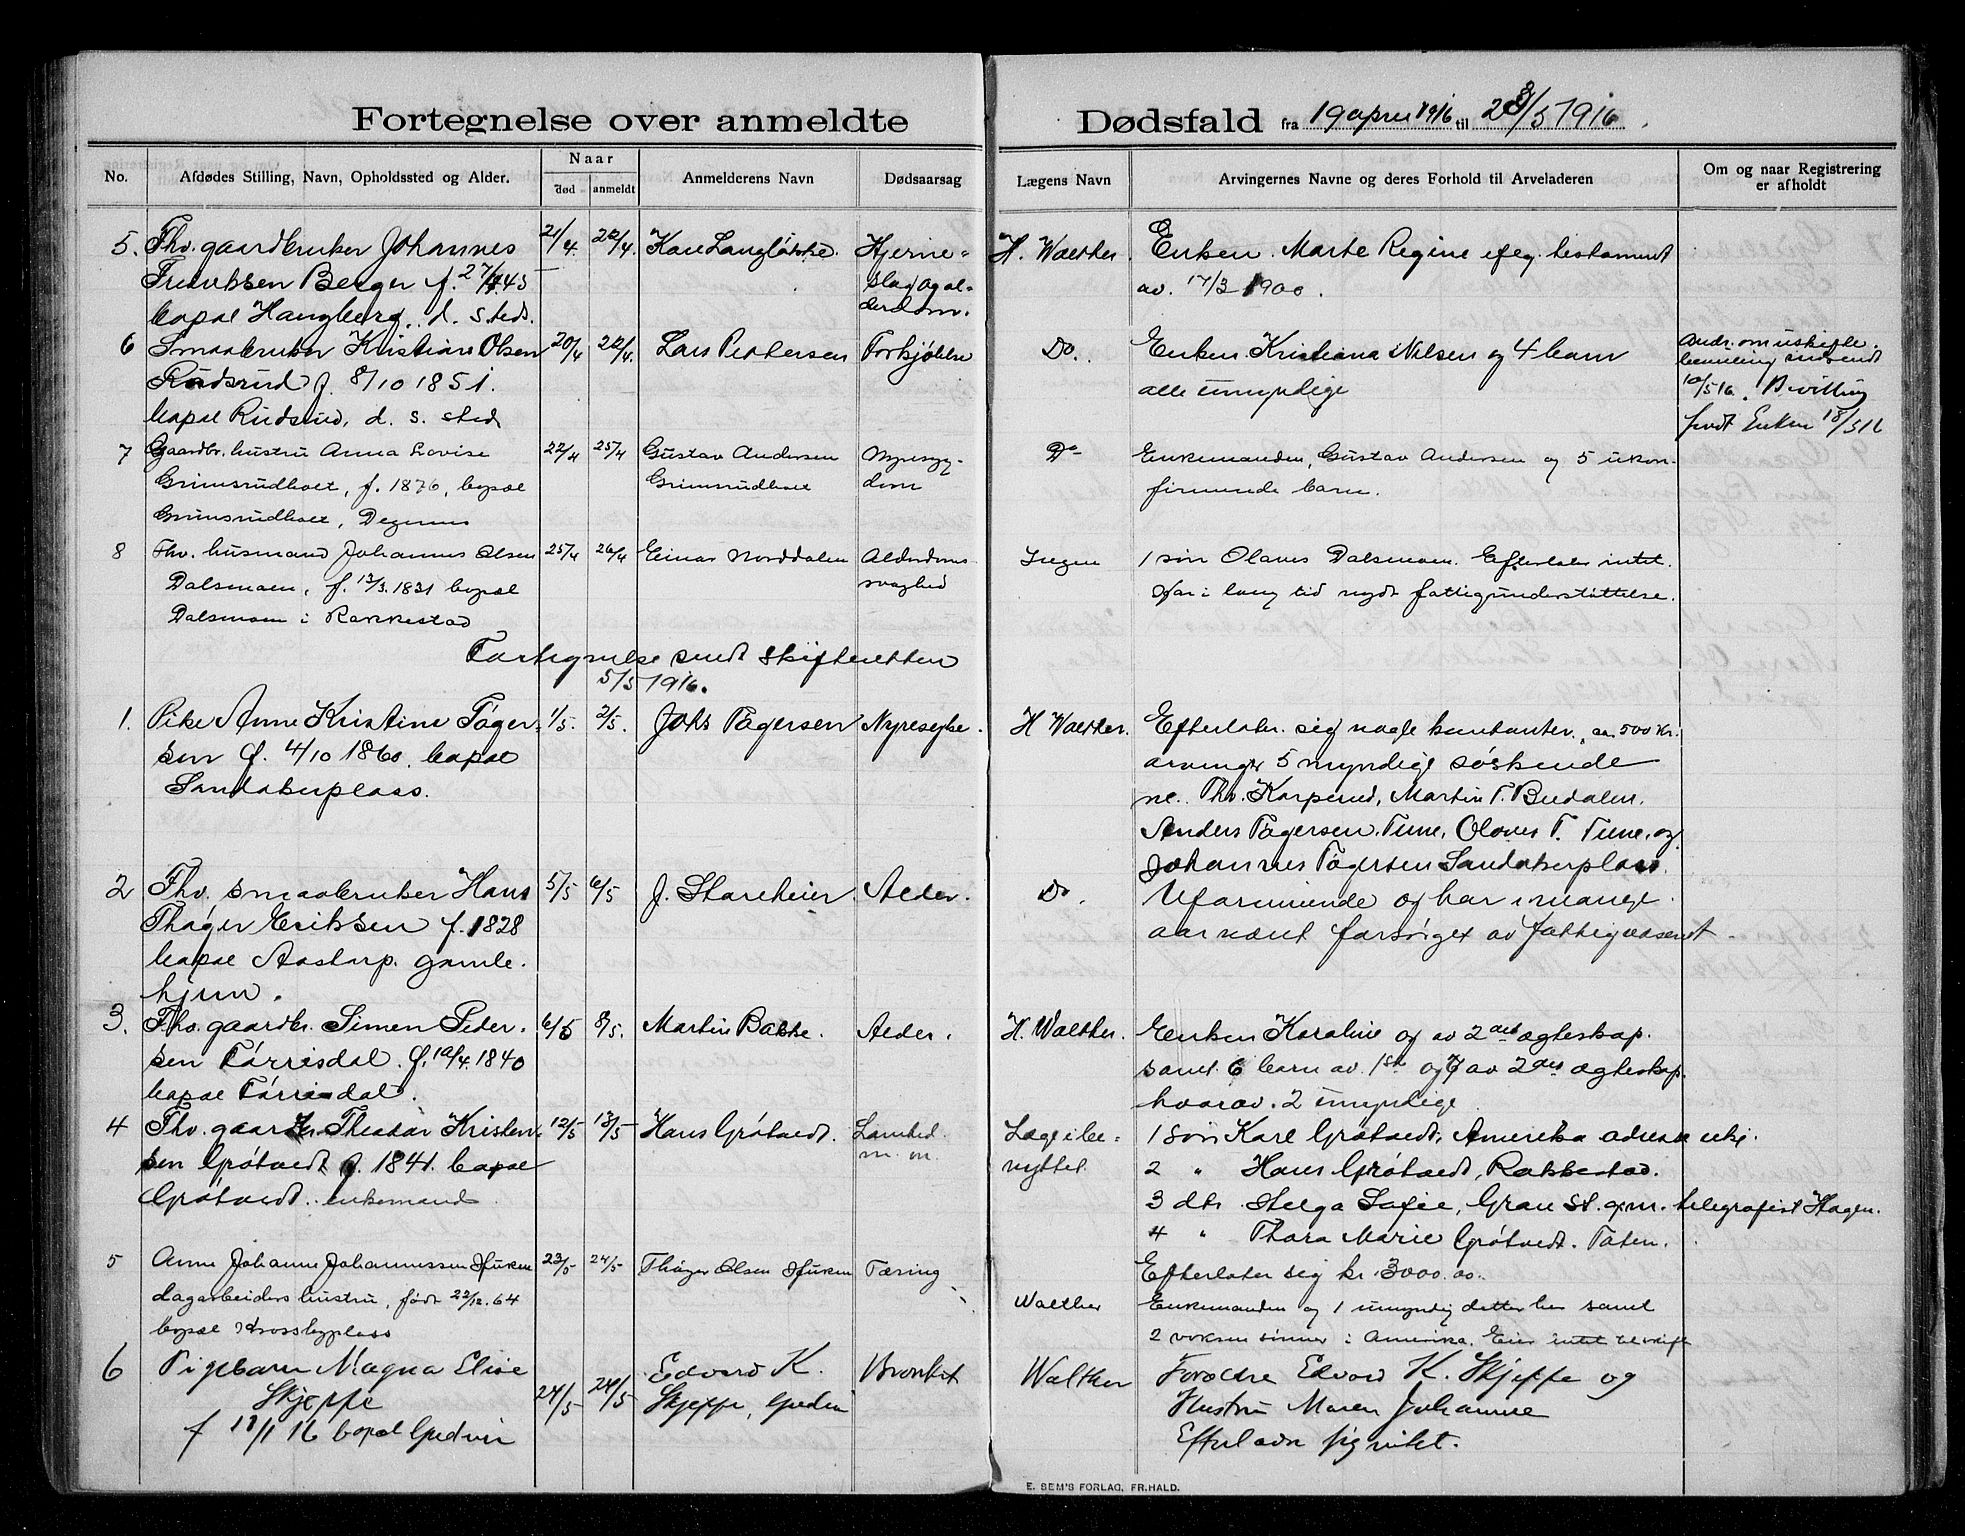 Fortegnelse over anmeldte Dødsfald fra 19 april 1916 til 28/5 1916.
No. Afdødes Stilling, Navn, Opholdssted og Alder. Naar død anmeldt Anmelderens Navn Dødsaarsag Lægens Navn Arvingernes Navne og deres Forhold til Arveladeren Om og naar Registrering er afholdt
5. Fhv. gaardbruker Johannes 21/4 22/4. Kari Hjerne= H. Walther. Enken Marte Regine efeg. testament
Berger f. 27/4.45 slag og al- av. 17/3 1900.
bopæl Haugberg, d. steds. derdom.
6 Smaabruker Kristian Olsen 20/4 22/4. Lars Pettersen Forkjølelse Do. Enken Kristiana Nilsen og 4 barn Andr. om uskifte
Rudsrud f. 8/10 1851. alle umyndige bevilling indsendt
10/5 16. Bevilling
bopæl Rudsrud, d. s. sted sendt Enken 18/5 16
7 Gaardbr. hustru Anna Lovise 22/4 25/4 Gustav Andersen Nyresyg- Do Enkemanden, Gustav Andersen og 5 ukon-
Grimsrudholt, f. 1876, bopæl Grimsrudholt dom firmerede barn.
Grimsrudholt, Degernes
8 Fhv. husmand Johannes Olsen 25/4 26/4 Einar Norddalen Alderdoms Ingen 1 søn Olaves Dalsmoen. Efterlater intet.
Dalsmoen, f. 13/3.1831 bopæl svaghed Har i lang tid nydt fattigunderstøttelse.
Dalsmoen i Rakkestad
Fortegnelse sendt skifteretten
5/5 1916.
1. Pike Anne Kristine Tøger= 1/5. 2/5. Johs Tøgersen Nyresyke. H Walther. Efterlater sig nogle kontanter, ca. 500 kr.
sen f. 4/10 1860. bopæl arvinger 5 myndige søskende
Sandakerplass. ne. Th. Korperud, Martin T. Budalen,
Anders Tøgersen, Tune, Olaves T. Tune, og
Johannes Tøgersen Sandakerplass.
2 Fhv. smaabruker Hans 5/5 6/5 J. Stareheier Alder. Do. Uformuende og har i mange
Thøger Eriksen f. 1828 aar været forsørget av fattigvæsenet.
bopæl Aastorp gamle-
hjem.
3. Fhv. gaardbr. Simen Peder- 6/5 8/5. Martin Bakke. Alder. H. Walther. Enken Karoline og av 2det ægteskap.
sen Tørrisdal. f. 10/4.1840 samt 6 barn av 1ste og 7 av 2det ægteskap
bopæl Tørrisdal. hvorav. 2 umyndige
4 Fhv. gaardbr. Theodor Kristen= 12/5 13/5 Hans Grøtvedt. Lamhed Læge ibe= 1 søn Karl Grøtvedt, Amerika adresse
sen Grøtvedt f. 1841. bopæl m. m. nyttet. 2 " Hans Grøtvedt, Rakkestad.
Grøtvedt. enkemand 3 dtr Helga Sofie, Gran St. g.m. telegrafist Hagen.
4 " Thora Marie Grøtvedt. Toten.
Efterlater sig kr. 3000.00.
5 Anne Johanne Johannessen 23/5 24/5 Thøger Olsen Tæring Walther Enkemanden og 1 umyndig datter her samt
dagarbeiders hustru, født 22/12.64 2 voksne sønner i Amerika. Eier intet til skifte
bopæl Krossbyplass
6 Pigebarn Magna Elise 24/5 24/5 Edvard K. Bronkit Walther Forældre Edvard K. Skjeppe og
Skjeppe Skjeppe, Hustru Maren Johanne
f 11/1 16 bopæl Efterlader sig intet.
E. SEM'S FORLAG, FR.HALD.